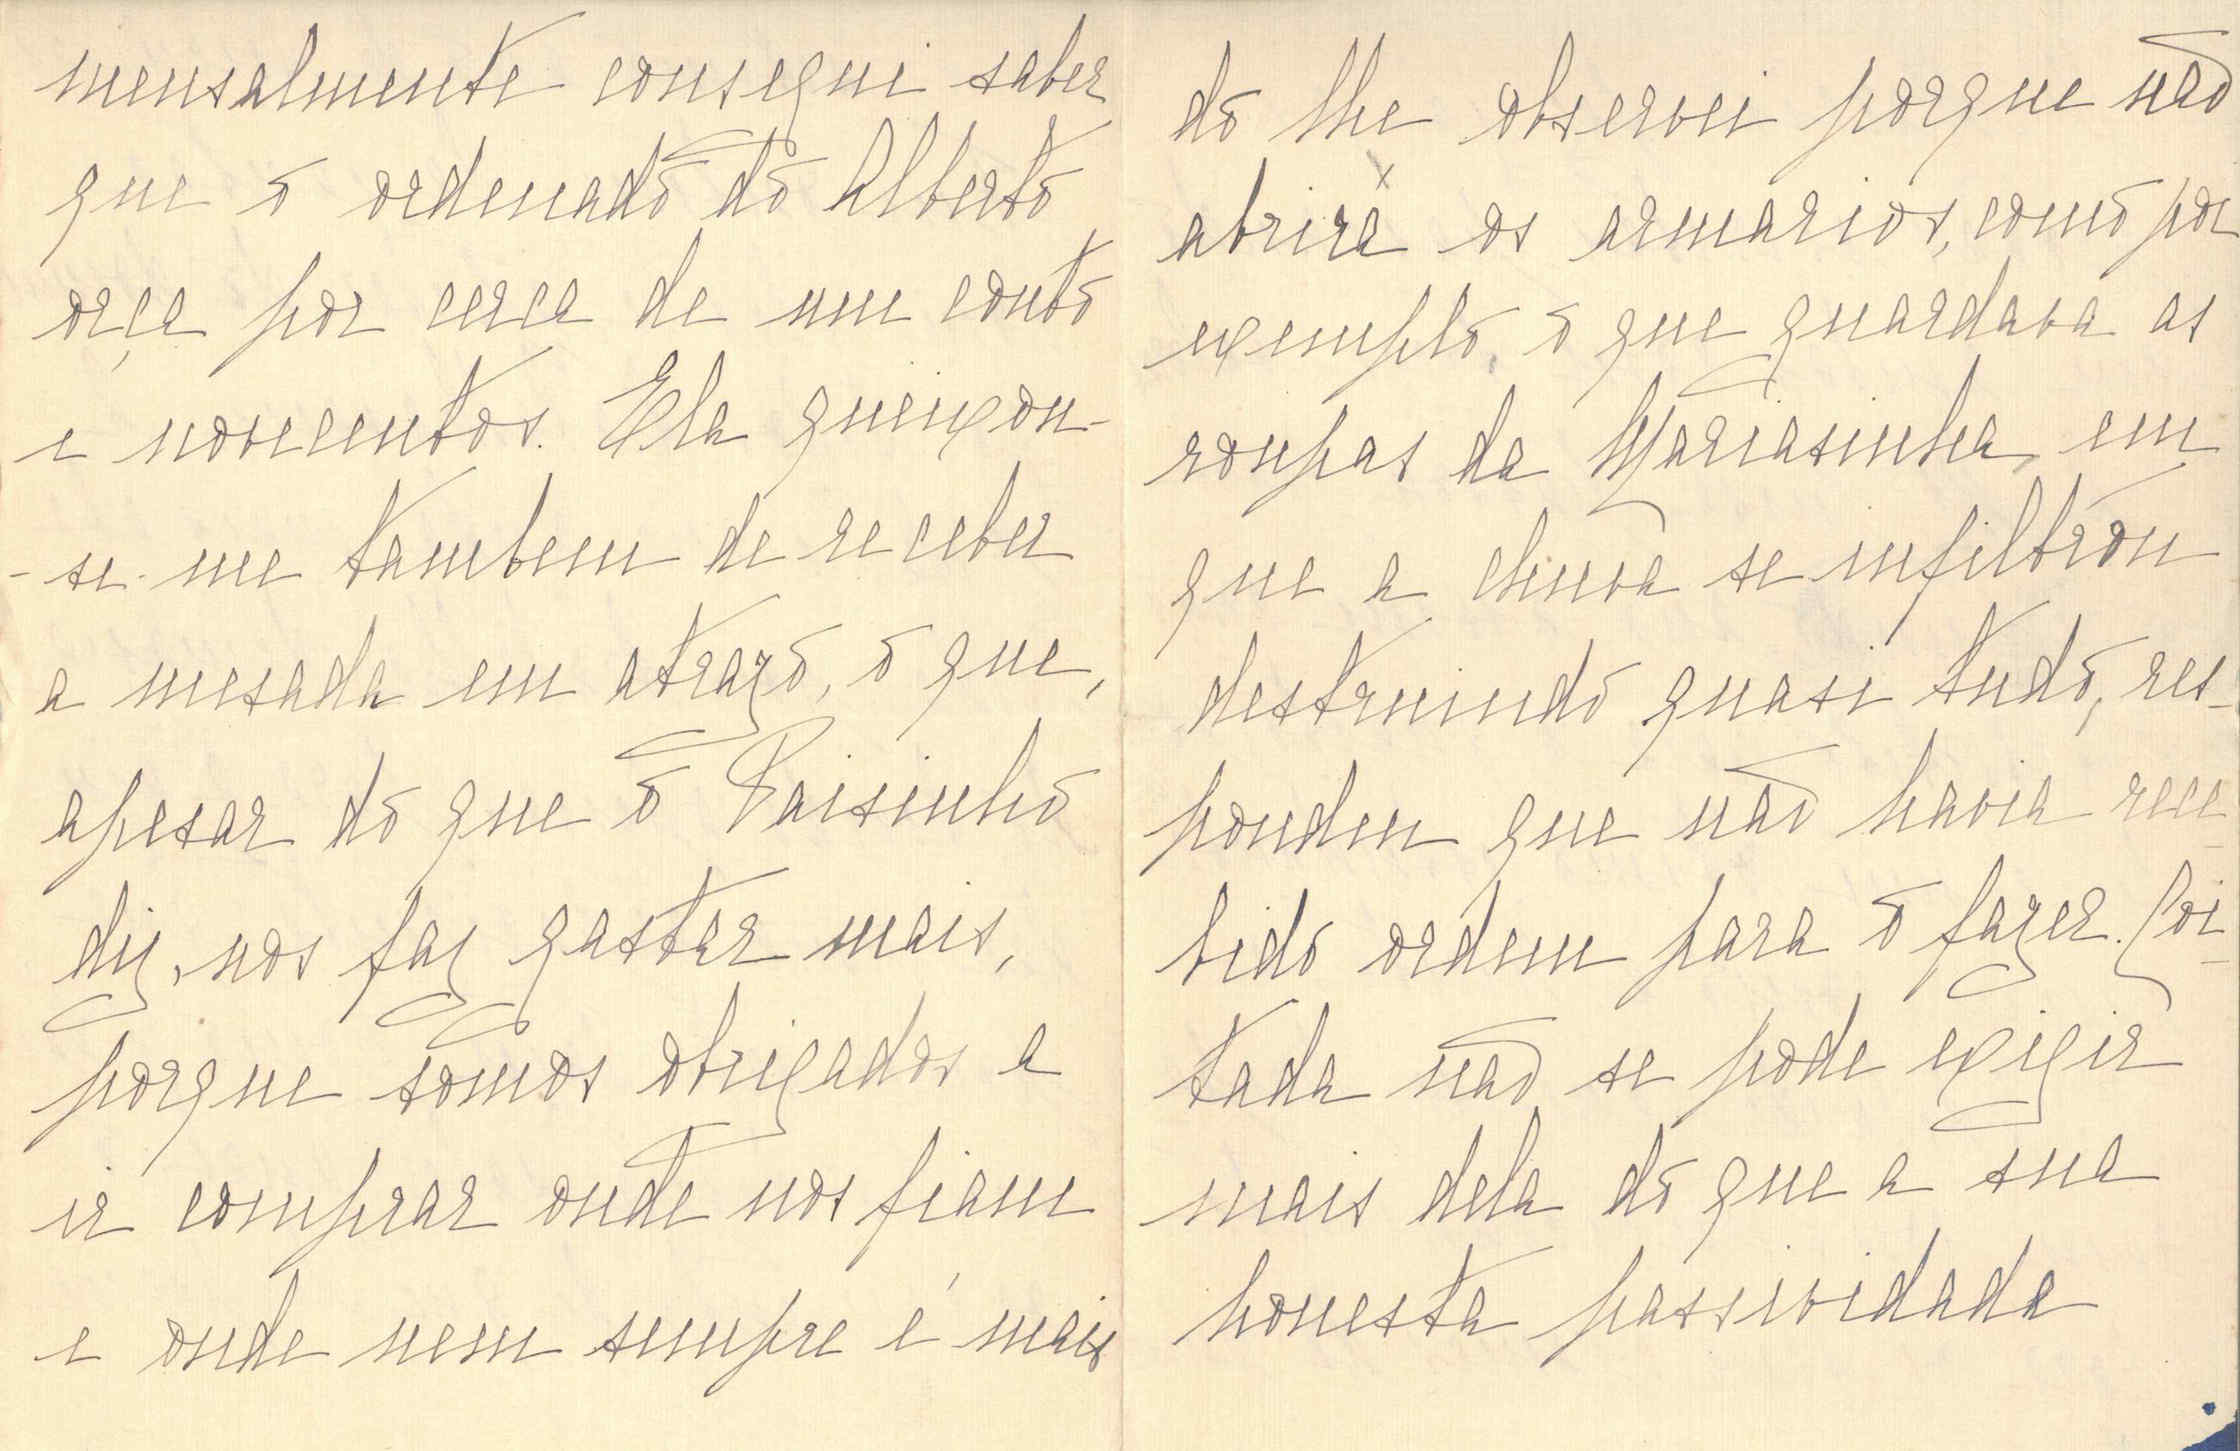 mensalmente consegui saber
que o ordenado do Alberto
orça por cerca de um conto
e novecentos. Ela queixou-
-se-me tambem de receber
a mesada em atrazo, o que,
apesar do que o Paisinho
diz, nos faz gastar mais,
porque somos obrigados a
ir comprar onde nos fiam
e onde nem sempre é mais
do lhe observei porque não
abrira os armarios, como por
exemplo, o que guardava as
roupas da Mariasinha, em
que a chuva se infiltrou
destruindo quasi tudo, res-
pondeu que não havia rece-
bido ordem para o fazer. Coi-
tada não se pode exigir
mais dela do que a sua
honesta passividade